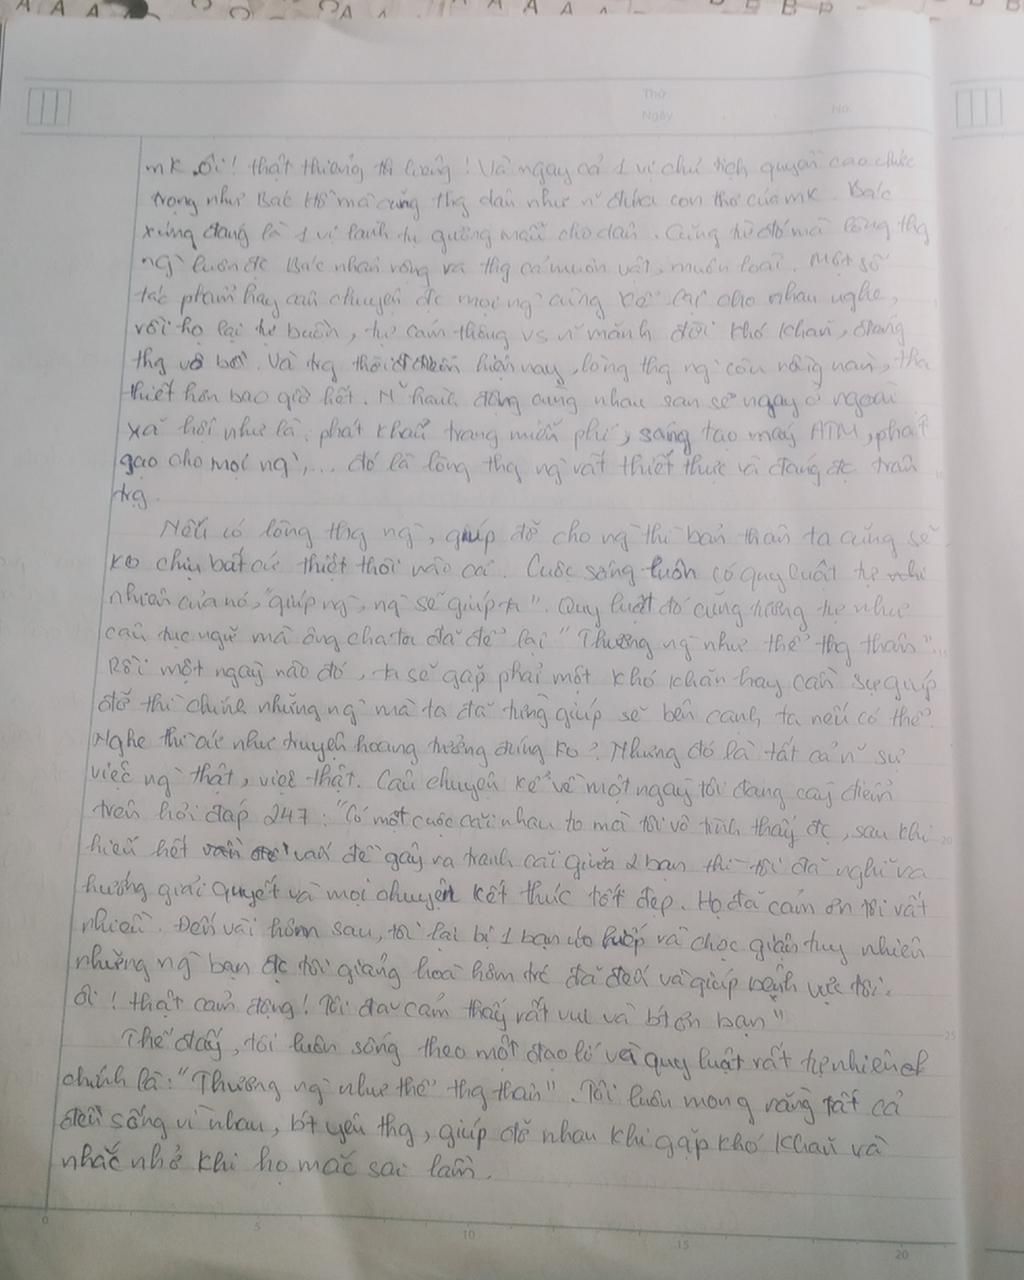 Thứ
Ngày
No.
mk. Ôi! thật thương thì lương! Và ngay cả 1 vị chủ tịch quyền cao chức
trọng như Bác Hồ mà cũng thg dân như n~ đứa con thơ của mk. Bác
xứng đáng là 1 vị lãnh tụ gương mẫu cho dân. Cũng từ đó mà lòng thg
ng` luôn đc Bác nhân rộng ra thg cả muôn vật, muôn loài. Một số
tác phẩm hay câu chuyện đc mọi ng` cùng kể lại cho nhau nghe,
rồi họ lại tự buồn, tự cảm thông vs n~ mảnh đời khó khăn, đáng
thg vô bờ. Và trg thời điểm hiện nay, lòng thg ng` còn nồng nàn, tha
thiết hơn bao giờ hết. N~ hành động cùng nhau san sẻ ngay ở ngoài
xã hội như là: phát khẩu trang miễn phí, sáng tạo máy ATM, phát
gạo cho mọi ng`,... đó là lòng thg ng` rất thiết thực và đáng đc trân
trg.
Nếu có lòng thg ng`, giúp đỡ cho ng` thì bản thân ta cũng sẽ
ko chịu bất cứ thiệt thòi nào cả. Cuộc sống luôn có quy luật tự nhi
nhiên của nó, "giúp ng`, ng` sẽ giúp ta". Quy luật đó cũng tương tự như
câu tục ngữ mà ông cha ta đã để lại "Thương ng` như thể thg thân"...
Rồi một ngày nào đó, ta sẽ gặp phải một khó khăn hay cần sự giúp
đỡ thì chính những ng` mà ta đã từng giúp sẽ bên cạnh ta nếu có thể.
Nghe thì cứ như truyện hoang tưởng đúng ko? Nhưng đó là tất cả n~ sự
việc ng` thật, việc thật. Câu chuyện kể về một ngày tôi đang cày điểm
trên hỏi đáp 247: "Có một cuộc cãi nhau to mà tôi vô tình thấy đc, sau khi
hiểu hết vấn đề gây ra tranh cãi giữa 2 bạn thì tôi đã nghĩ ra
hướng giải quyết và mọi chuyện kết thúc tốt đẹp. Họ đã cảm ơn tôi rất
nhiều. Đến vài hôm sau, tôi lại bị 1 bạn và chọc giận tuy nhiên
những ng` bạn đc tôi giảng hoà hôm trc đã đến và giúp bệnh vực tôi.
Ôi! thật cảm động! Tôi đã cảm thấy rất vui và bt ơn bạn"
Thế đấy, tôi luôn sống theo một đạo lí và quy luật rất tự nhiên
chính là: "Thương ng` như thể thg thân". Tôi luôn mong rằng tất cả
đều sống vì nhau, bt yêu thg, giúp đỡ nhau khi gặp khó khăn và
nhắc nhở khi họ mắc sai lầm.
0 5 10 15 20
20
25